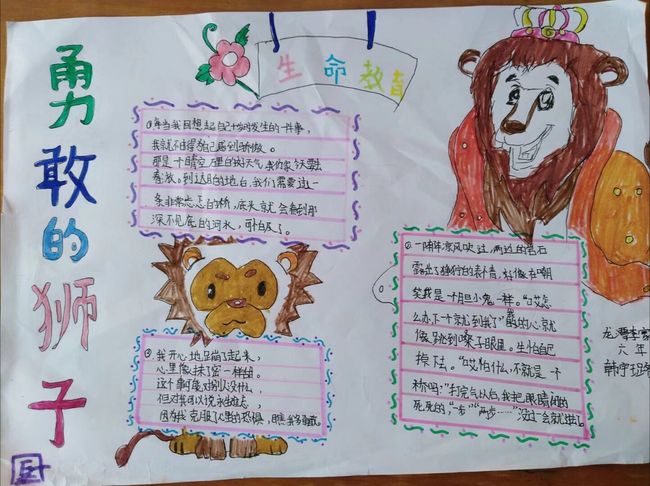 勇敢的狮子
生命教育
①每当我回想起自己身上发生的一件事,
我就不由得为自己感到骄傲。
那是一个晴空万里的好天气,我们家
到达目的地后,我们需要过一
条非常 的桥,底头就会看到那
深不见底的河水,可怕极了。
②我开心地蹦了起来,
心里像抹了蜜一样甜。
这个事可能对别人没什么,
但对我可以说永生难忘,
因为我克服了心里的恐惧,
①一阵阵凉风吹过,两边的岩石
露出了狰狞的表情,好像在嘲
笑我是一个胆小鬼一样。“哎怎
么办下一个就到我了”我的心就
像跳到嗓子眼里。生怕自己
掉下去。“哎怕什么,不就是一个
桥吗!”打完气以后,我把眼睛闭的
死死的,“一步”“两步……”没过一会就过去了。
六年